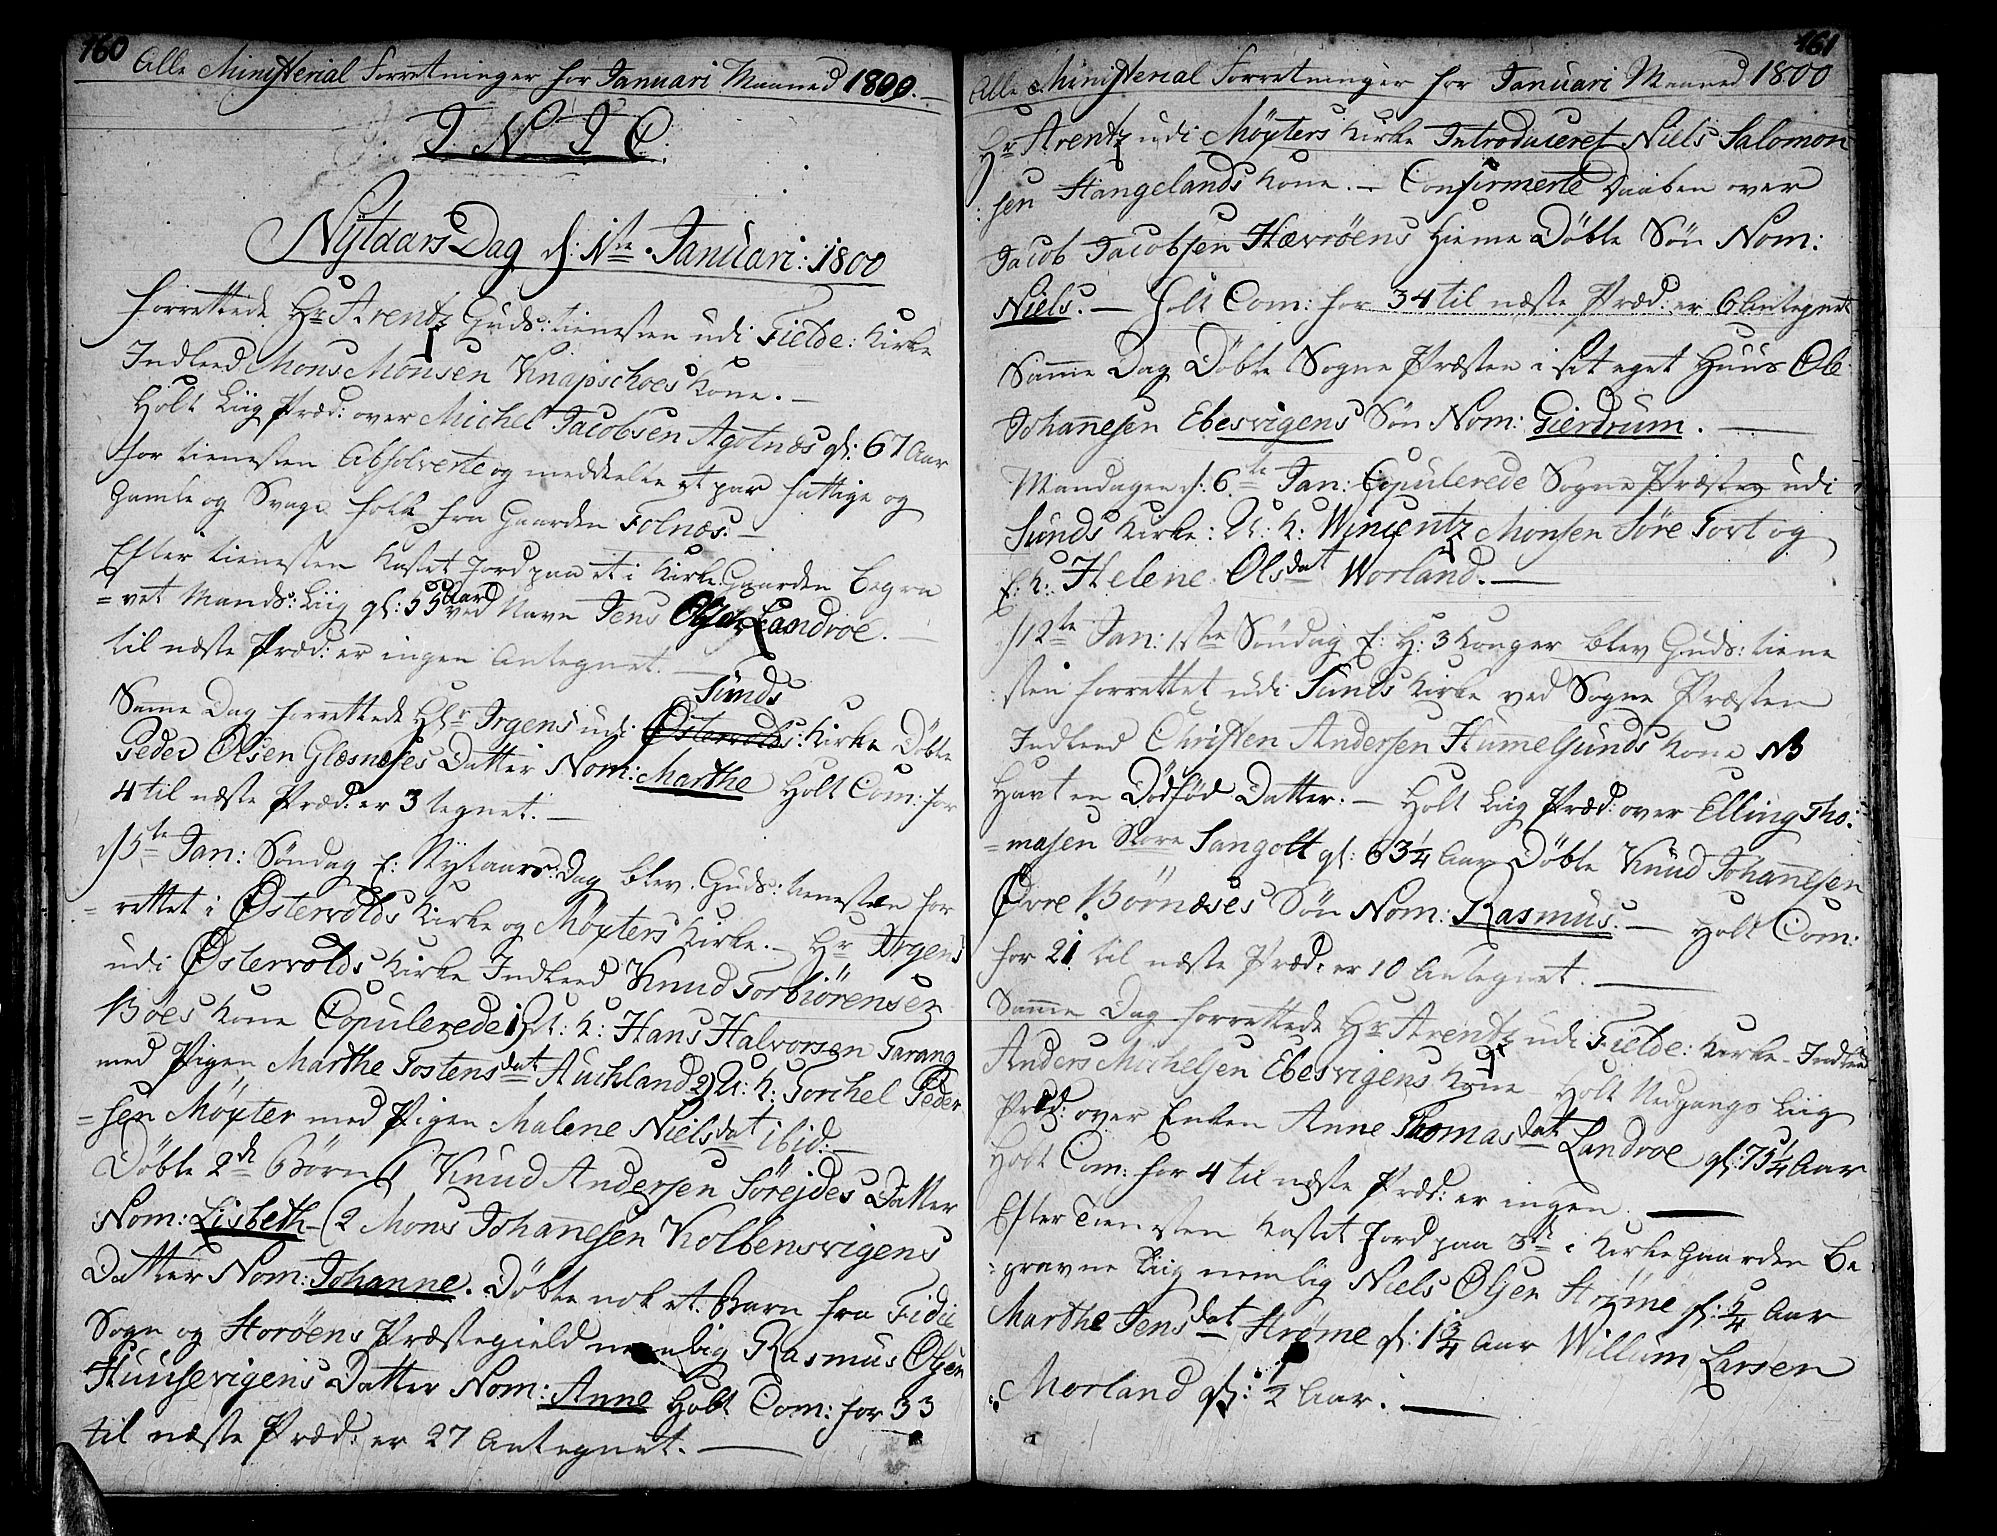 160 Alle Ministerial Forretninger for Januari Maaned 1800.
I. N. I. C.
Nytaars Dag d: 1ste Januari: 1800
forrettede Hr Arentz Guds: tienesten udi Fielde: Kirke
Indleed Mons Monsen Knapschoes Kone. –
Holt Liig Præd: over Michel Jacobsen Agotnæs gl: 67 Aar
for tienesten Absolverte og meddeelte et par fattige og
gamle og Svage folk fra Gaarden Folnæs. –
Efter tienesten Kastet Jord paa et i Kirke Gaarden begra
= vet Mands: Liig gl: 55 Aar ved Navn Jens Olsen Landroe. –
til næste Præd: er ingen Antegnet. –
Sunds
Samme Dag forrettede Hr Irgens udi Østervolds: Kirke Døbte
Peder Olsen Glæsnæses Datter Nom: Marthe Holt Com: for
4 til næste Præd: er 3 tegnet. –
d 5te Jan: Søndag E: Nytaars: Dag blev Guds: tienesten for
= rettet i Østervolds Kirke og Møgsters Kirke. – Hr Irgens
udi Østervolds Kirke Indleed Knud Torbiörensen
Boes Kone Copulerede 1) U: K: Hans Halvorsen Tarang
med Pigen Marthe Tostensdat Auchland 2) U: K: Torchel Peder
= sen Møgster med Pigen Malene Nielsdat ibid. –
Döbte 2de Börn (1 Knud Andersen Sørejdes Datter
Nom: Lisbeth – (2 Mons Johannesen Kolbensvigens
Datter Nom: Johanne. Döbte nok et Barn fra Fidie
Sogn og Storöens Præstegield nemlig Rasmus Olsen
Huusevigens Datter Nom: Anne Holt Com: for 33
til næste Præd: er 27 Antegnet. –
161
Alle Ministerial Forretninger for Januari Maaned 1800
Hr Arentz udi Møgsters Kirke Introduceret Niels Salomon
: sen Hangelands Kone. – Confirmerte Daaben over
Jacob Jacobsen Hævröens Hieme Döbte Sön Nom:
Niels. – Holt Com: for 34 til næste Præd: er 6 Antegnet
Samme Dag Döbte Sogne Præsten i sit eget Huus Ole
Johannesen Ebesvigens Sön Nom: Gierdrum. –
Mandagen d: 6te Jan: Copulerede Sogne Præsten udi
Sunds Kirke: U. K: Wincentz Monsen Söre Tort og
E: K: Helene Olsdat Worland. –
d 12te Jan: 1ste Söndag E: H: 3 Konger blev Guds: tiene
: sten forrettet udi Sunds Kirke ved Sogne Præsten
Indleed Christen Andersen Hummelsunds Kone NB
Havt en Dödfød Datter. – Holt Liig Præd: over Elling Tho:
= masen Store Sangolt gl: 63¼ Aar Döbte Knud Johannesen
Øvre Börnæses Sön Nom: Rasmus. – Holt Com:
for 21 til næste Præd: er 10 Antegnet. –
Samme Dag forrettede Hr Arentz udi Fielde: Kirke – Indleed
Anders Michelsen Ebesvigens Kone Holt Nedgangs Liig
Præd: over Enken Anne Thomasdat Landroe gl: 75¼ Aar
Holt Com: for 4 til næste Præd: er ingen –
Efter Tienesten Kastet Jord paa 3de i Kirke Gaarden be
: gravne Liig nemlig Niels Olsen Strøme gl: 5/4 Aar
Marthe Jensdat Strøme gl: 1¾ Aar Willum Larsen
Morland gl: ½ Aar. –